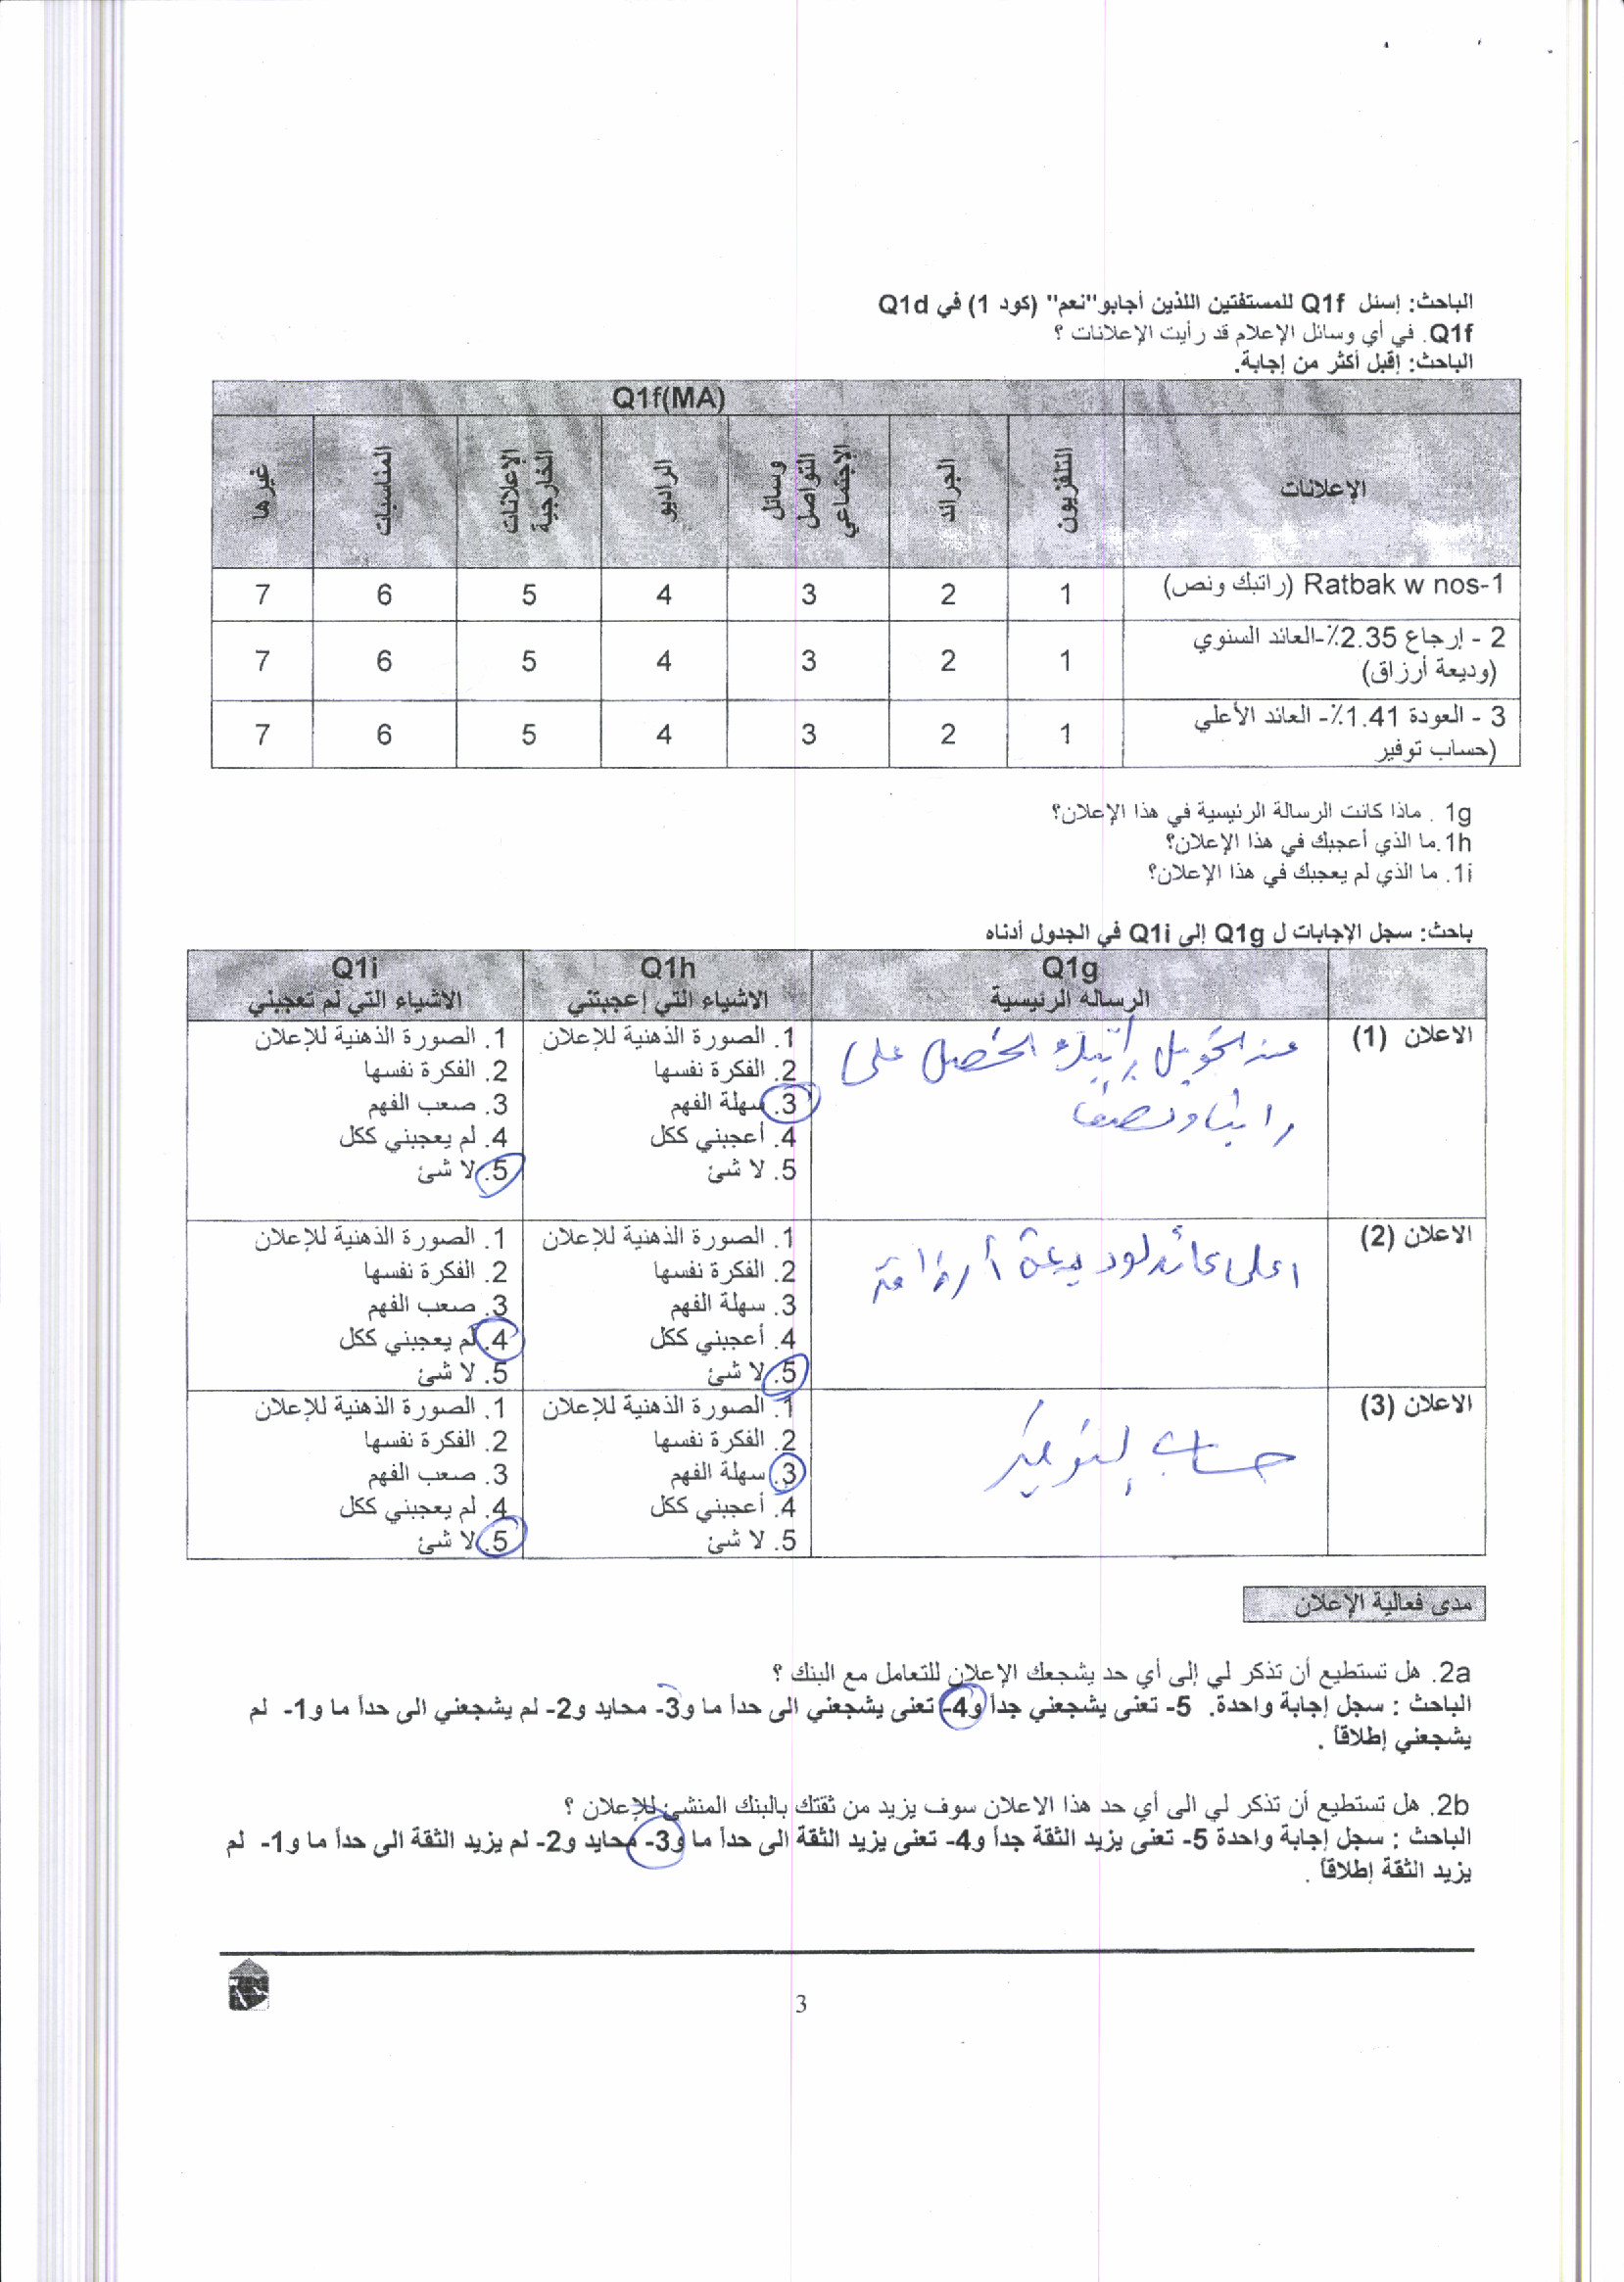 الباحث: إسئل Q1f للمستفتين اللذين أجابو"نعم" (كود 1) في Q1d
Q1f. في أي وسائل الإعلام قد رأيت الإعلانات ؟
الباحث: إقبل أكثر من إجابة.
Q1f(MA)
الإعلانات التلفزيون الجرائد وسائل التواصل الإجتماعي الراديو الإعلانات الخارجية المناسبات غيرها
1-Ratbak w nos (راتبك ونص) 1 2 3 4 5 6 7
2 - إرجاع 2.35٪-العائد السنوي
(وديعة أرزاق) 1 2 3 4 5 6 7
3 - العودة 1.41٪- العائد الأعلي
(حساب توفير 1 2 3 4 5 6 7
1g . ماذا كانت الرسالة الرئيسية في هذا الإعلان؟
1h.ما الذي أعجبك في هذا الإعلان؟
1i. ما الذي لم يعجبك في هذا الإعلان؟
باحث: سجل الإجابات ل Q1g إلى Q1i في الجدول أدناه
Q1g Q1h Q1i
الرساله الرئيسية الاشياء التي إعجبتني الاشياء التي لم تعجبني
الاعلان (1)
عند تحويل راتبك تحصل على
راتبا ونصف
1. الصورة الذهنية للإعلان
2. الفكرة نفسها
3. سهلة الفهم
4. أعجبني ككل
5. لا شئ
1. الصورة الذهنية للإعلان
2. الفكرة نفسها
3. صعب الفهم
4. لم يعجبني ككل
5. لا شئ
الاعلان (2)
اعلى عائد لوديعة أرزاق
1. الصورة الذهنية للإعلان
2. الفكرة نفسها
3. سهلة الفهم
4. أعجبني ككل
5. لا شئ
1. الصورة الذهنية للإعلان
2. الفكرة نفسها
3. صعب الفهم
4. لم يعجبني ككل
5. لا شئ
الاعلان (3)
حساب توفير
1. الصورة الذهنية للإعلان
2. الفكرة نفسها
3. سهلة الفهم
4. أعجبني ككل
5. لا شئ
1. الصورة الذهنية للإعلان
2. الفكرة نفسها
3. صعب الفهم
4. لم يعجبني ككل
5. لا شئ
مدى فعالية الإعلان
2a. هل تستطيع أن تذكر لي إلى أي حد يشجعك الإعلان للتعامل مع البنك ؟
الباحث : سجل إجابة واحدة. 5- تعنى يشجعني جداً و4- تعنى يشجعني الى حداً ما و3- محايد و2- لم يشجعني الى حداً ما و1- لم
يشجعني إطلاقاً .
2b. هل تستطيع أن تذكر لي الى أي حد هذا الاعلان سوف يزيد من ثقتك بالبنك المنشئ للإعلان ؟
الباحث : سجل إجابة واحدة 5- تعنى يزيد الثقة جداً و4- تعنى يزيد الثقة الى حداً ما و3- محايد و2- لم يزيد الثقة الى حداً ما و1- لم
يزيد الثقة إطلاقاً .
3